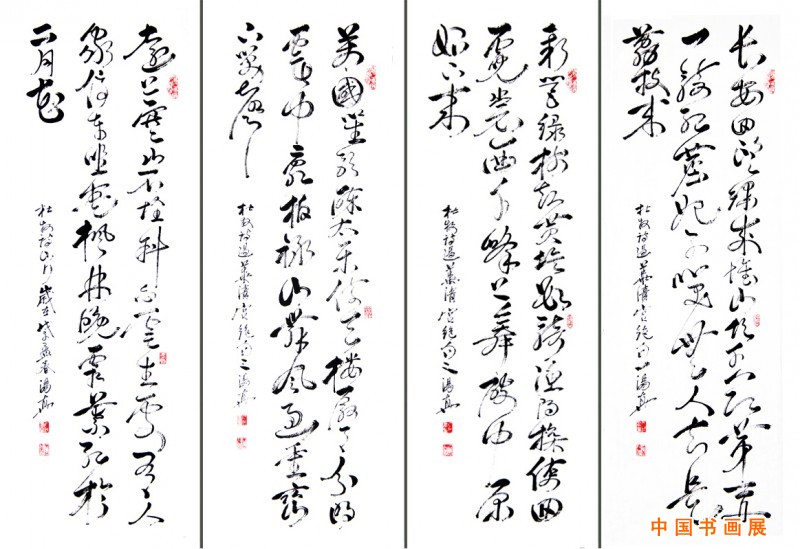 长安回望绣成堆山顶千门次第开
一骑红尘妃子笑无人知是
荔枝来
杜牧诗过华清宫绝句一
新丰绿树起黄埃数骑渔阳探使回
霓裳一曲千峰上舞破中原
始下来
杜牧诗过华清宫绝句之二
万国笙歌醉太平倚天楼殿月分明
云中乱拍禄山舞风过重峦
下笑声
杜牧诗过华清宫绝句之
远上寒山石径斜白云生处有人
家停车坐爱枫林晚霜叶红于
二月花
杜牧诗山行
中国书画展